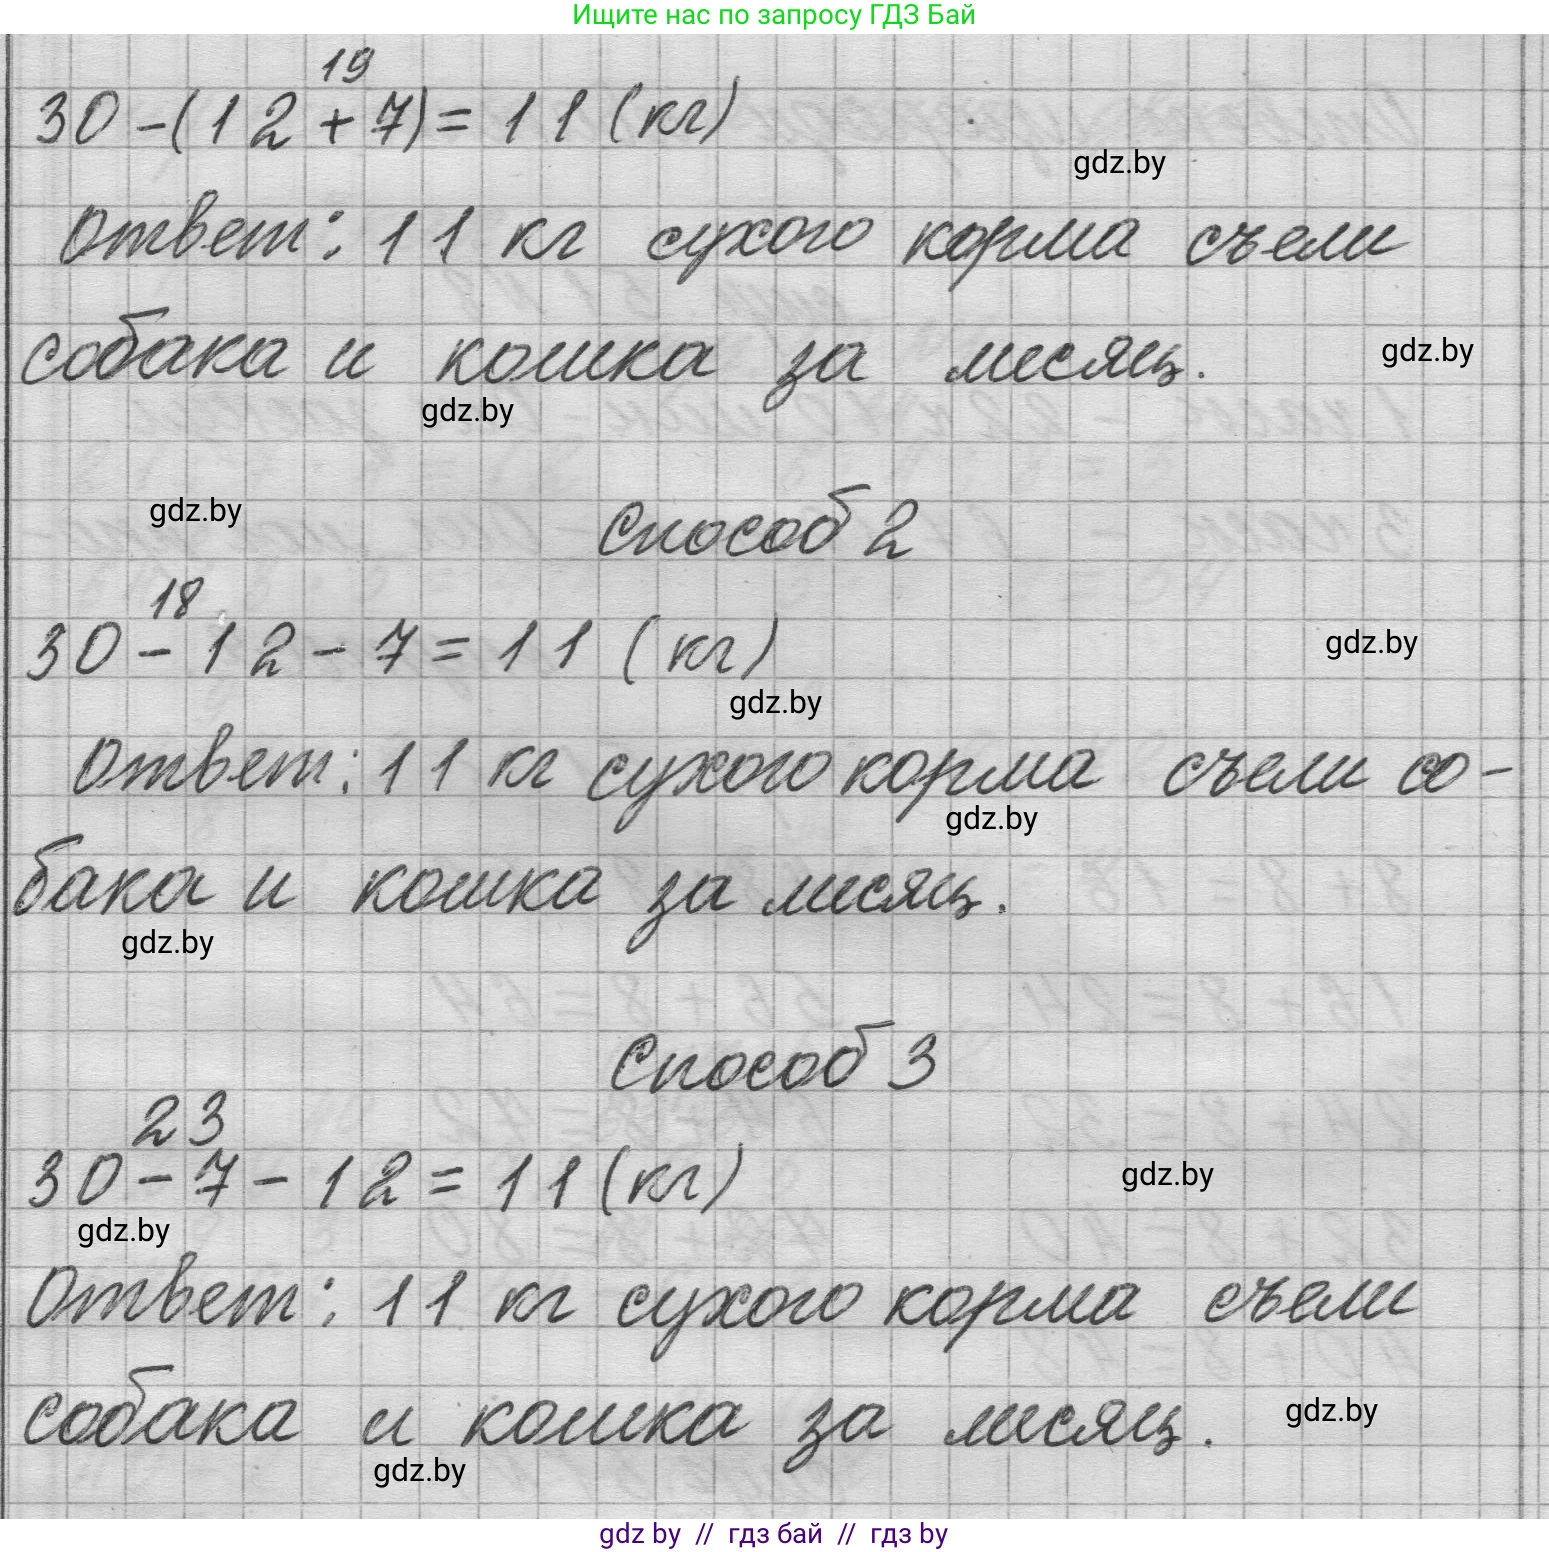 Ищите нас по запросу ГДЗ Бай
19
30-(12+7)=11(кг)
gdz.by
Ответ: 11 кг сухого корма съели
собака и кошка за месяц.
gdz.by
gdz.by
gdz.by
Способ 2
18
30-12-7=11 (кг)
gdz.by
gdz.by
Ответ: 11 кг сухого корма съели со-
gdz.by
бака и кошка за месяц.
gdz.by
Способ 3
23
30-7-12=11(кг)
gdz.by
gdz.by
Ответ: 11 кг сухого корма съели
собака и кошка за месяц.
gdz.by
gdz.by
gdz by // гдз бай // гдз by